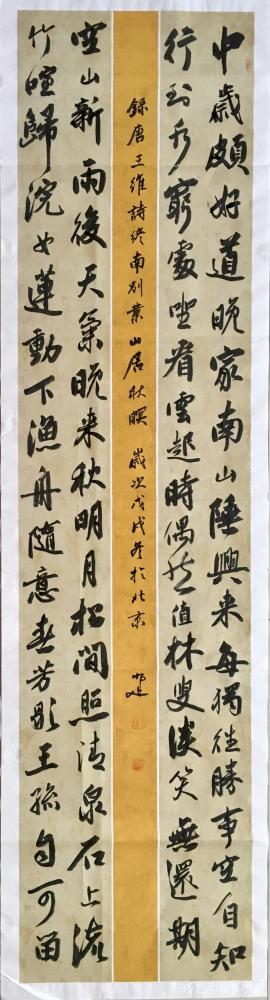 中歲頗好道晚家南山陲興來每獨往勝事空自知
行到水窮處坐看雲起時偶然值林叟談笑無還期
錄唐王維詩終南別業山居秋暝 歲次戊戌冬於北京
空山新雨後天氣晚來秋明月松間照清泉石上流
竹喧歸浣女蓮動下漁舟隨意春芳歇王孫自可留